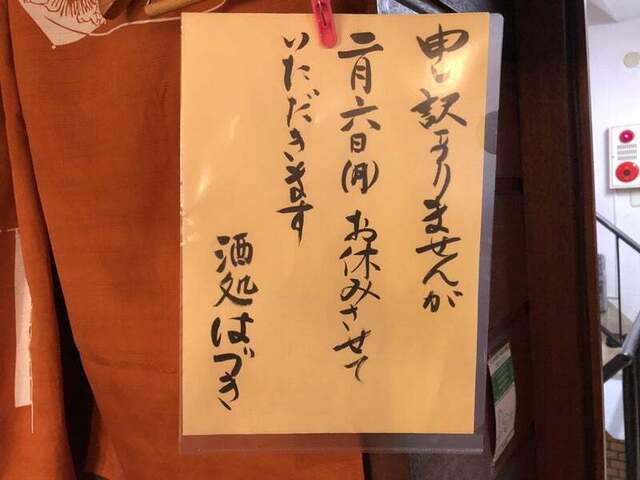 申し訳ありませんが
二月六日(月)お休みさせて
いただきます
酒処はづき